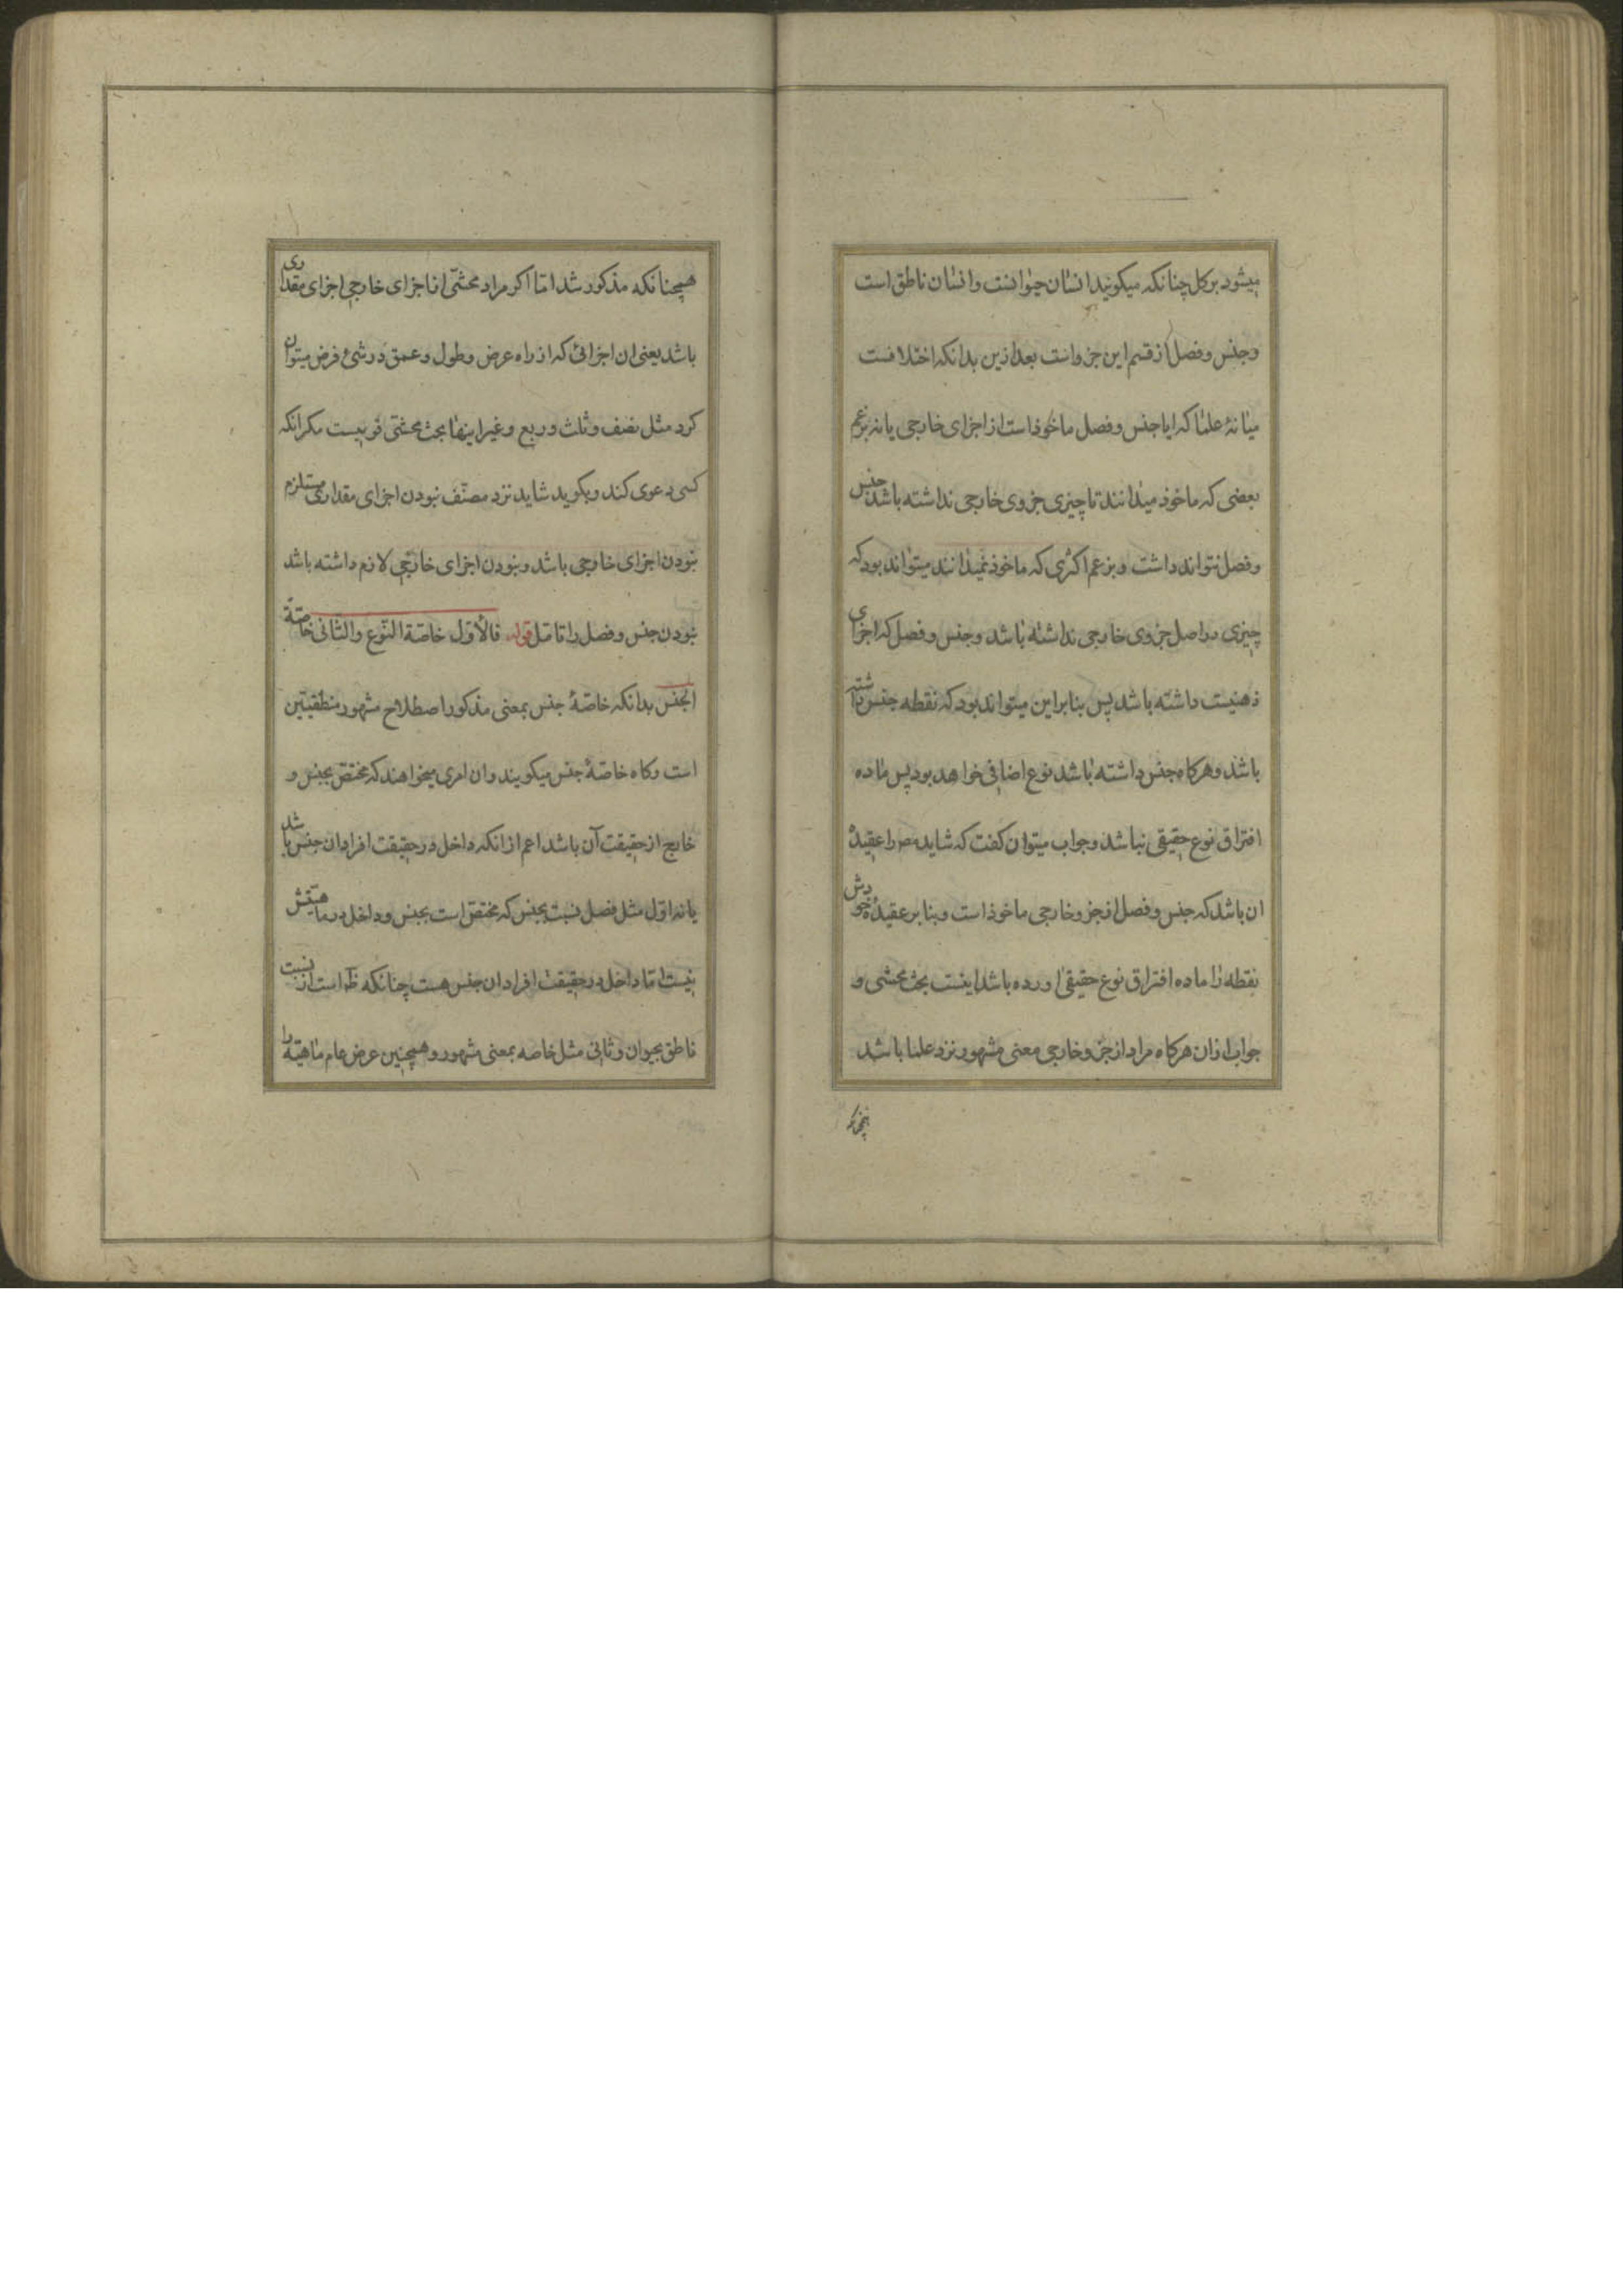 میشود بر کل چنانکه میکویند انسان حیوانست و انسان ناطق است
و جنس و فصل از قسم این جزو است بعد ازین بدانکه اختلافست
میانهٔ علما که ایا جنس و فصل ماخوذ است از اجزای خارجی یا نه بزعم
بعضی که ماخوذ میدانند تا چیزی جزوی خارجی نداشته باشد جنس
و فصل نتواند داشت و بزعم اکثری که ماخوذ نمیدانند میتواند بود که
چیزی در اصل جزوی خارجی نداشته باشد و جنس و فصل که اجزای
ذهنیست داشته باشد پس بنا براین میتواند بود که نقطه جنس داشته
باشد و هرکاه جنس داشته باشد نوع اضافی خواهد بود پس ماده
افتراق نوع حقیقی نباشد و جواب میتوان کفت که شاید مص را عقیدهٔ
ان باشد که جنس و فصل از جزو خارجی ماخوذ است و بنا بر عقیدهٔ خودش
نقطه را ماده افتراق نوع حقیقی اورده باشد اینست بحث محشی و
جواب ازان هرکاه مراد از جزو خارجی معنی مشهور نزد علما باشد
همچنانکه مذکور شد امّا اکر مراد محشّی از اجزای خارجی اجزای مقداری
باشد یعنی ان اجزائی که از راه عرض و طول و عمق در شیٔ فرض میتوان
کرد مثل نصف و ثلث و ربع و غیر اینها بحث محشّی قوی نیست مکر انکه
کسی دعوی کند و بکوید شاید نزد مصنّف نبودن اجزای مقداری مستلزم
نبودن اجزای خارجی باشد و نبودن اجزای خارجی لازم داشته باشد
نبودن جنس و فصل را تامّل قوله فالأوّل خاصّة النّوع والثّانی خاصّة
الجنس بدانکه خاصّهٔ جنس بمعنی مذکور اصطلاح مشهور منطقیّین
است و کاه خاصّهٔ جنس میکویند و ان امری میخواهند که مختصّ بجنس و
خارج از حقیقت آن باشد اعم از انکه داخل در حقیقت افراد ان جنس باشد
یا نه اوّل مثل فصل نسبت بجنس که مختصّ است بجنس و داخل در ماهیّتش
نیست امّا داخل در حقیقت افراد ان جنس هست چنانکه ظ است از نسبت
ناطق بحیوان و ثانی مثل خاصه بمعنی مشهور و همچنین عرض عام ماهیّة را